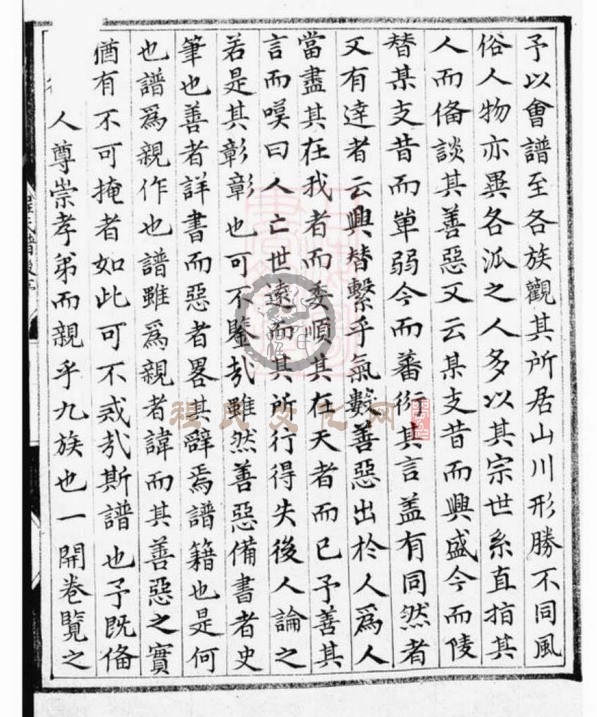 予以會譜至各族觀其所居山川形勝不同風
俗人物亦異各派之人多以其宗世系直指其
人而俻談其善惡又云某支昔而興盛今而陵
替某支昔而單弱今而蕃衍其言盖有同然者
又有達者云興替繫乎氣數善惡出於人為人
當盡其在我者而委順其在天者而已予善其
言而嘆曰人亡世遠而其所行得失後人論之
若是其彰彰也可不鑒㢤雖然善惡備書者史
筆也善者詳書而惡者畧其辭焉譜籍也是何
也譜爲親作也譜雖爲親者諱而其善惡之實
猶有不可掩者如此可不戒㢤斯譜也予既俻
人尊崇孝弟而親乎九族也一開卷覽之
程氏文化网